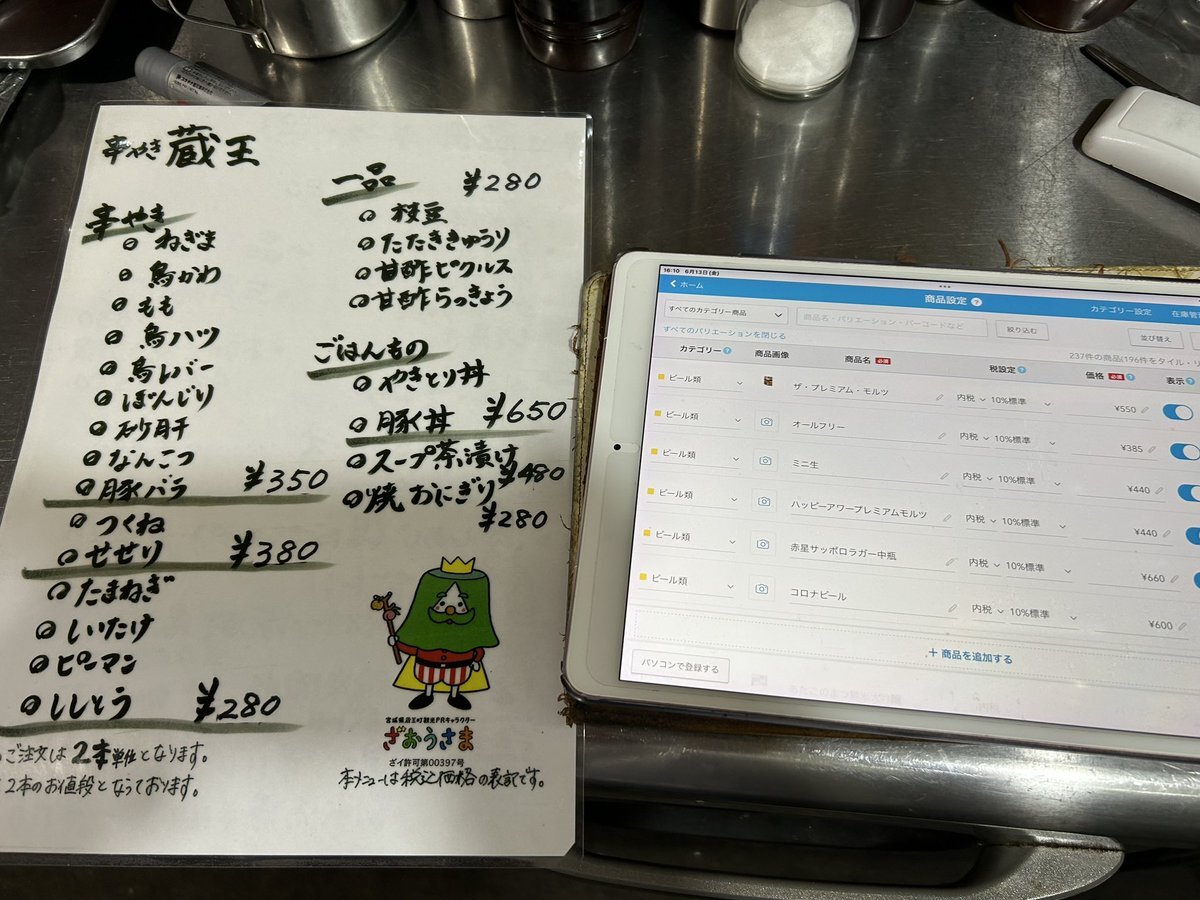 串やき 蔵王
串やき
ねぎま
鳥かわ
もも
鳥ハツ
鳥レバー
ぼんじり
砂肝
なんこつ
豚バラ ¥350
つくね
せせり ¥380
たまねぎ
しいたけ
ピーマン
ししとう ¥280
ご注文は2本単位となります。
2本のお値段となっております。
一品 ¥280
枝豆
たたききゅうり
甘酢ピクルス
甘酢らっきょう
ごはんもの
やきとり丼
豚丼 ¥650
スープ茶漬け ¥480
焼おにぎり ¥280
宮城県蔵王町観光PRキャラクター
ざおうさま
ザイ許可第00397号
本メニューは税込価格の表記です。
16:10 6月13日(金)
ホーム
商品設定 ?
カテゴリー設定
在庫管
すべてのカテゴリー商品
商品名・バリエーション・バーコードなど
絞り込む
並び替え
すべてのバリエーションを閉じる
237件の商品(196件をタイル・リ
カテゴリー ? 商品画像 商品名 必須 税設定 ? 価格 必須 ? 表示 ?
ビール類 ザ・プレミアム・モルツ 内税 10%標準 ¥550
ビール類 オールフリー 内税 10%標準 ¥385
ビール類 ミニ生 内税 10%標準 ¥440
ビール類 ハッピーアワープレミアムモルツ 内税 10%標準 ¥440
ビール類 赤星サッポロラガー中瓶 内税 10%標準 ¥660
ビール類 コロナビール 内税 10%標準 ¥600
+ 商品を追加する
パソコンで登録する